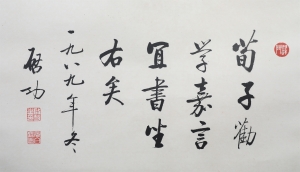 荀子勸
学嘉言
宜書坐
右矣
一九八九年冬
启功